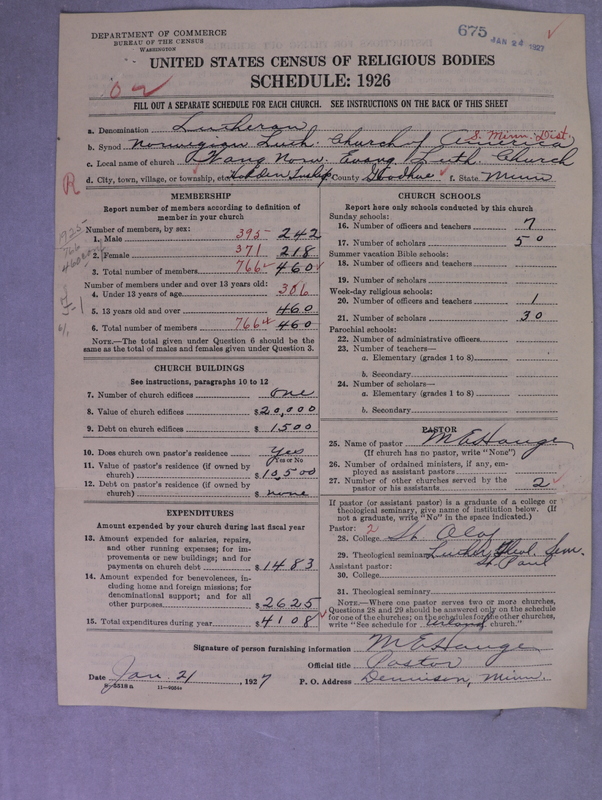 DEPARTMENT OF COMMERCE
BUREAU OF THE CENSUS
WASHINGTON
675 JAN 24 1927
UNITED STATES CENSUS OF RELIGIOUS BODIES
SCHEDULE: 1926
FILL OUT A SEPARATE SCHEDULE FOR EACH CHURCH. SEE INSTRUCTIONS ON THE BACK OF THIS SHEET
a. Denomination Lutheran
b. Synod Norwegian Luth. Church of America S. Minn. Dist.
c. Local name of church Vang Norw. Evang Luth. Church
d. City, town, village, or township, etc. Holden Twsp County Goodhue f. State Minn
R
MEMBERSHIP
Report number of members according to definition of
member in your church
Number of members, by sex:
1. Male 395 242
2. Female 371 218
3. Total number of members 766 460
Number of members under and over 13 years old:
4. Under 13 years of age 306
5. 13 years old and over 460
6. Total number of members 766 460
NOTE.—The total given under Question 6 should be
the same as the total of males and females given under Question 3.
1925
766
460
CHURCH BUILDINGS
See instructions, paragraphs 10 to 12
7. Number of church edifices one
8. Value of church edifices $20,000
9. Debt on church edifices $1500
10. Does church own pastor's residence yes
Yes or No
11. Value of pastor's residence (if owned by
church) $10,500
12. Debt on pastor's residence (if owned by
church) $none
EXPENDITURES
Amount expended by your church during last fiscal year
13. Amount expended for salaries, repairs,
and other running expenses; for im-
provements or new buildings; and for
payments on church debt $1483
14. Amount expended for benevolences, in-
cluding home and foreign missions; for
denominational support; and for all
other purposes $2625
15. Total expenditures during year $4108
CHURCH SCHOOLS
Report here only schools conducted by this church
Sunday schools:
16. Number of officers and teachers 7
17. Number of scholars 50
Summer vacation Bible schools:
18. Number of officers and teachers
19. Number of scholars
Week-day religious schools:
20. Number of officers and teachers 1
21. Number of scholars 30
Parochial schools:
22. Number of administrative officers
23. Number of teachers—
a. Elementary (grades 1 to 8)
b. Secondary
24. Number of scholars—
a. Elementary (grades 1 to 8)
b. Secondary
PASTOR
25. Name of pastor M E Hauge
(If church has no pastor, write "None")
26. Number of ordained ministers, if any, em-
ployed as assistant pastors
27. Number of other churches served by the
pastor or his assistants 2
If pastor (or assistant pastor) is a graduate of a college or
theological seminary, give name of institution below. (If
not a graduate, write "No" in the space indicated.)
Pastor: 2
28. College St. Olaf
29. Theological seminary Luther Theol. Sem.
St Paul
Assistant pastor:
30. College
31. Theological seminary
NOTE.—Where one pastor serves two or more churches,
Questions 28 and 29 should be answered only on the schedule
for one of the churches; on the schedules for the other churches,
write "See schedule for church."
Signature of person furnishing information M E Hauge
Official title Pastor
Date Jan. 21, 1927 P. O. Address Dennison, Minn.
8—5318a 11—9084